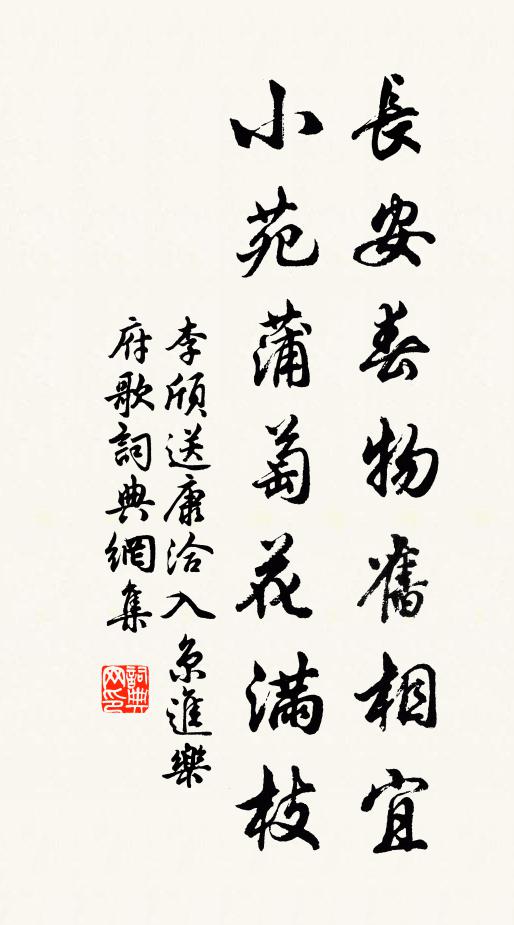 長安春物舊相宜
小苑蒲萄花滿枝
李頎送康洽入京進樂
府歌詞典網集
詞典網印